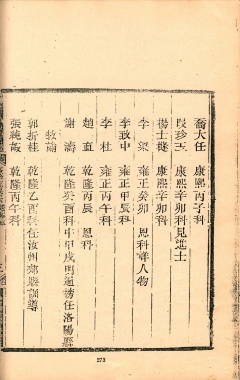 喬大任　康熙丙子科
段珍玉　康熙辛卯科見進士
楊士鏈　康熙辛卯科
李梁　雍正癸卯　恩科詳人物
李致中　雍正甲辰科
李杜　雍正丙午科
趙直　乾隆丙辰　恩科
謝濤　乾隆癸酉科中甲戌明通榜任洛陽縣
教諭
郭折桂　乾隆乙酉科任汝州郟縣訓導
張純嘏　乾隆丙午科
273